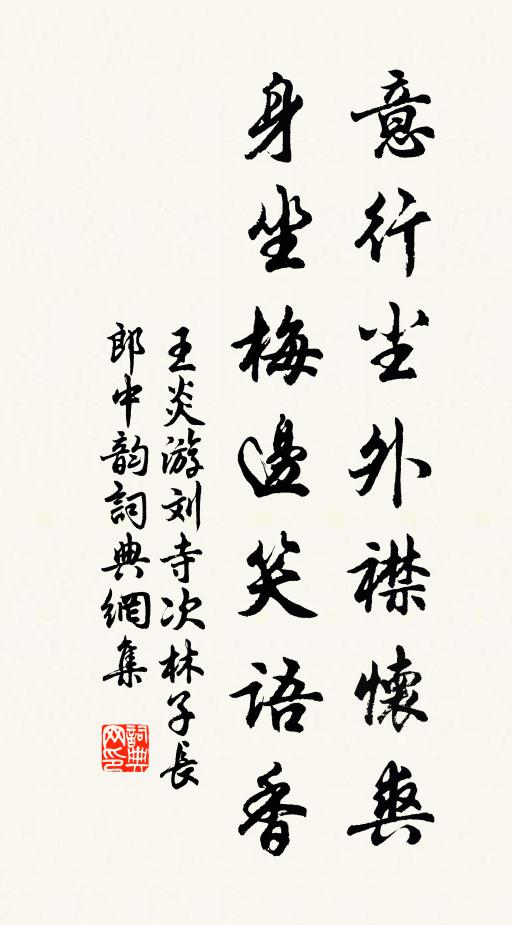 意行尘外襟懷爽
身坐梅邊笑語香
王炎游刘寺次林子長
郎中韵詞典網集
詞典网印